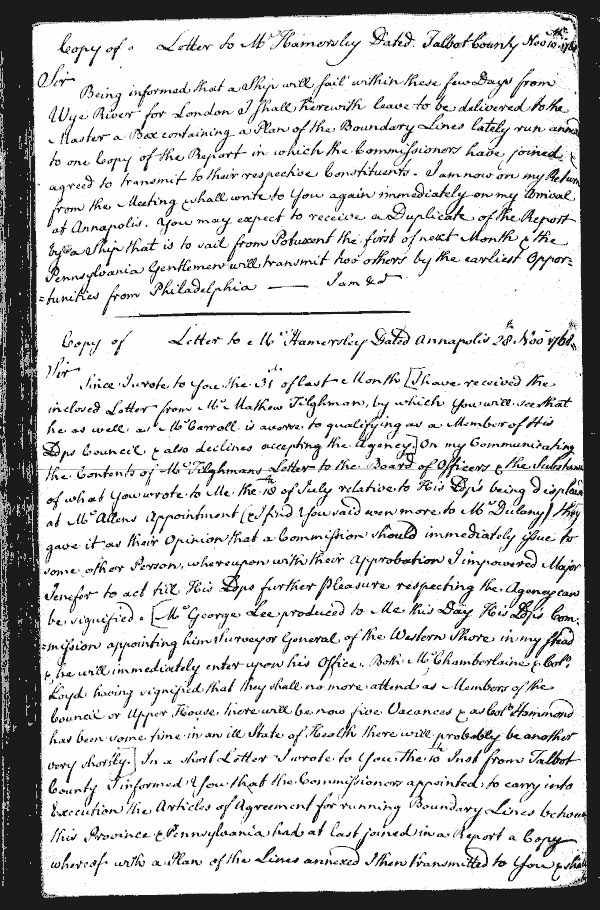 Copy of a Letter to Mr Hamersley Dated Talbot County Novr 10th 1768
Sir
Being informed that a Ship will sail within these few Days from
Wye River for London I shall herewith leave to be delivered to the
Master a Box containing a Plan of the Boundary Lines lately run annexed
to one Copy of the Report in which the Commissioners have joined &
agreed to transmit to their respective Constituents. I am now on my Return
from the Meeting & shall write to You again immediately on my Arrival
at Annapolis. You may expect to receive a Duplicate of the Report
by a Ship that is to sail from Potuxent the first of next Month & the
Pennsylvania Gentlemen will transmit two others by the earliest Oppor=
=tunities from Philadelphia — I am &c
Copy of Letter to Mr Hamersley Dated Annapolis 28th Novr 1768.
Sir
Since I wrote to You the 31st of last Month [I have received the
inclosed Letter from Mr Mathew Tilghman, by which You will see that
he as well as Mr Carroll is averse to qualifying as a Member of His
Ldps Council & also declines accepting the Agency] On my Communicating
the Contents of Mr Tilghmans Letter to the Board of Officers & the Substance
of what You wrote to Me the of July relative to His Ldps being displeased
at Mr Allens Appointment (& I find You said even more to Mr Dulany) they
gave it as their Opinion that a Commission should immediately issue to
some other Person, whereupon with their Approbation I impowered Major
Jenefer to act till His Ldps further Pleasure respecting the Agency can
be signified. [Mr George Lee produced to Me this Day His Ldps Com:
=mission appointing him Surveyor General of the Western Shore in my stead
& he will immediately enter upon his Office. Both Mr Chamberlaine & Colo.
Loyd having signified that they shall no more attend as Members of the
Council or Upper House there will be now five Vacances & as Colo Hammond
has been some time in an ill State of Health there will probably be another
very shortly.] In a short Letter I wrote to You the 10th Inst from Talbot
County I informed You that the Commissioners appointed to carry into
Execution the Articles of Agreement for running Boundary Lines between
this Province & Pennsylvania had at last joined in a Report a Copy
whereof with a Plan of the Lines annexed I then transmitted to You & shall